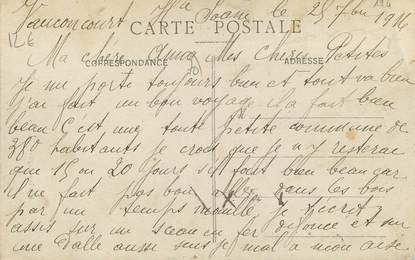 Vauconcourt Hte Saone le 25 7bre 1916
CARTE POSTALE
126
Ma chère Anna Mes chères Petites
CORRESPONDANCE ADRESSE
Je me porte toujours bien et tout va bien
j'ai fait un bon voyage il a fait bien
beau C'est une toute petite commune de
380 habitants je crois que je n'y resterai
que 15 ou 20 jours s'il fait bien beau car
il ne fait pas bon dans les bois
par un temps mouillé je t'écrit
assis sur un sceau en fer et sur
une Dalle aussi suis je mal a mon aise